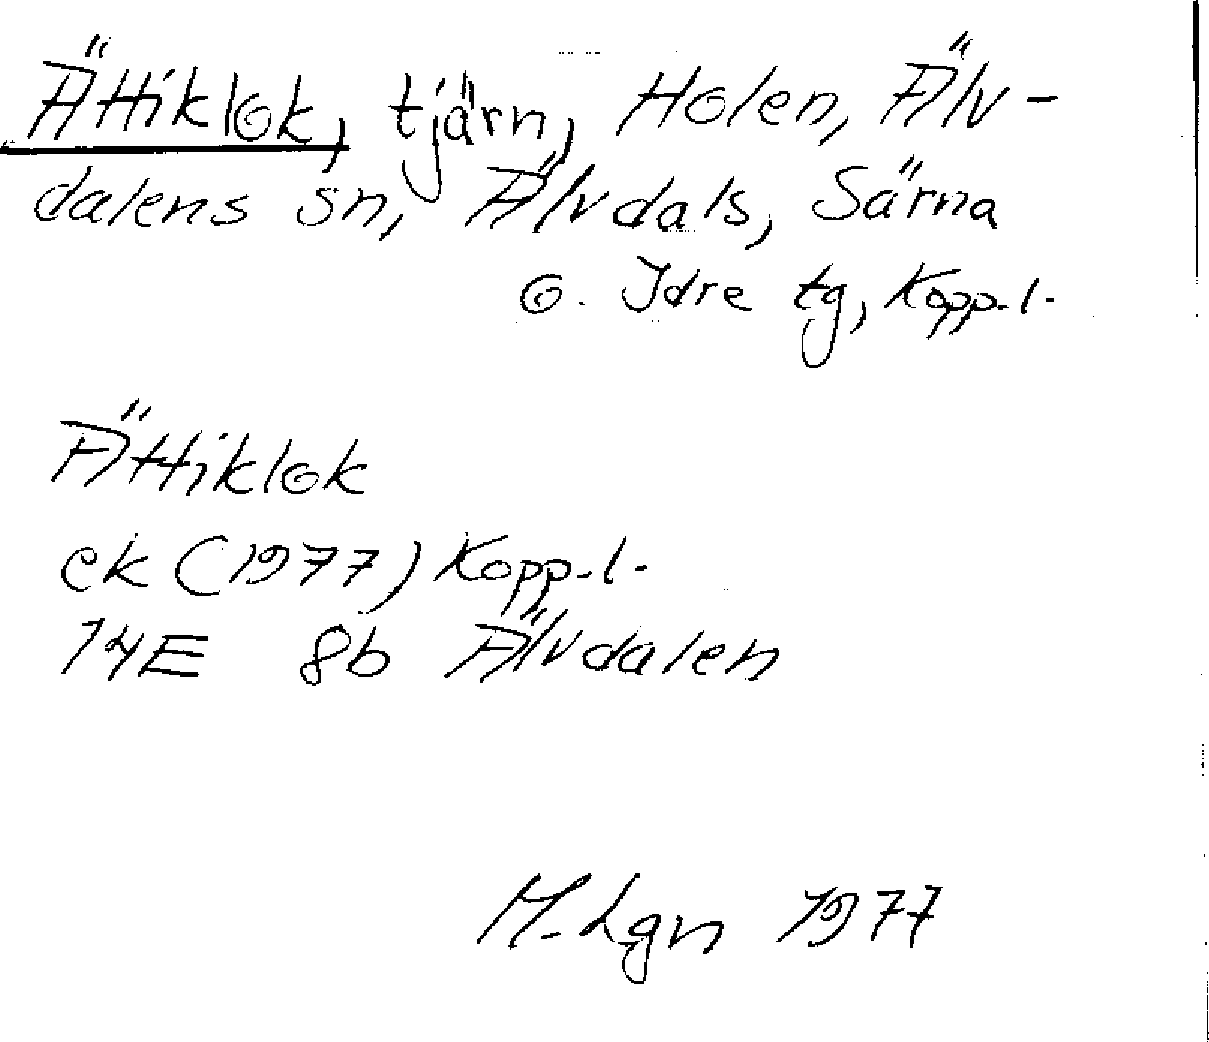 Ättiklok, tjärn, Holen, Älv-
dalens sn, Älvdals, Särna
o. Idre tg, Kopp. l.
Ättiklok
ek (1977) Kopp. l.
14E 8b Älvdalen
M. Lgn 1977